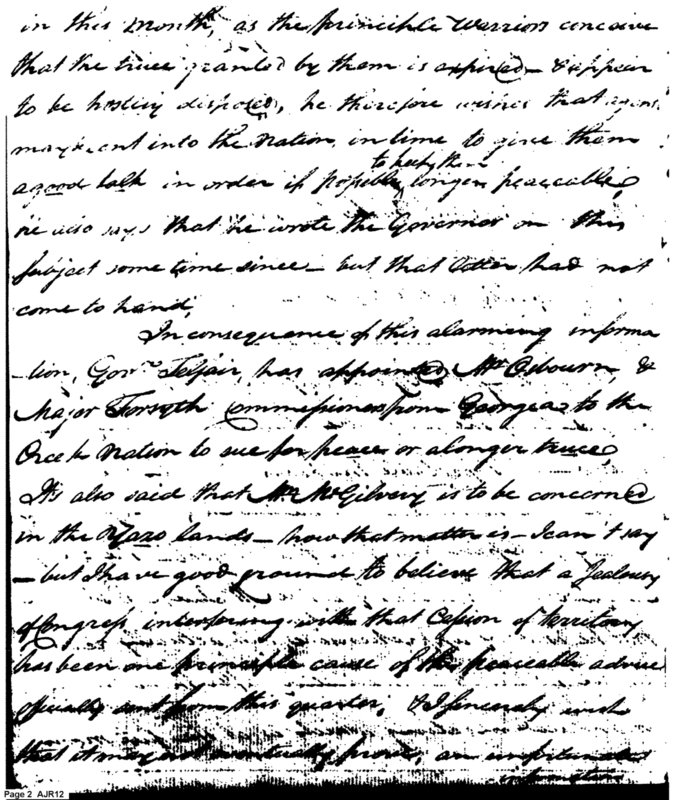 in this month, as the principle Warriors conceive
that the truce granted by them is expired – & appear
to be hostily disposed, he therefore wishes that agents
may be sent into the Nation in time to give them
a good talk in order if possible to keep them longer peaceable,
he also says that he wrote the Governor on this
subject some time since – but that letter had not
come to hand,
In consequence of this alarming informa
-tion, Govr. Telfair, has appointed Mr. Osbourn, &
Major Forsyth, Commissioners from Georgia to the
Creek Nation to sue for peace or a longer truce,
It's also said that Mr. McGilvery is to be concerned
in the Yazo lands – how that matter is – I can't say
– but I have good ground to believe that a Jealousy
of Congress interfering with that Cession of territory
has been one principle cause of the peaceable advice
officially sent from this quarter, & I sincerely wish
that it may not eventually prove, an unfortunate
Page 2 AJR12